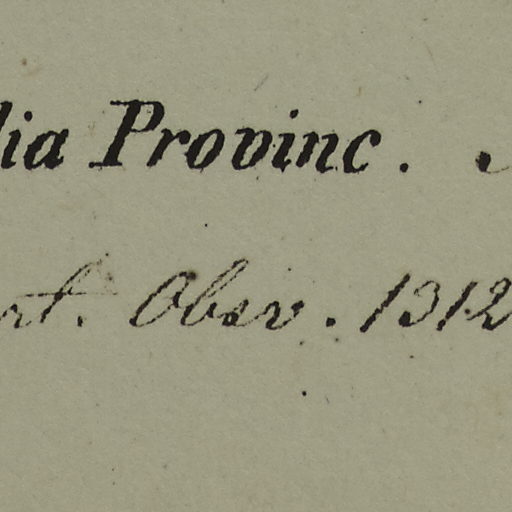 lia Provinc.
rt. Obsv. 1312